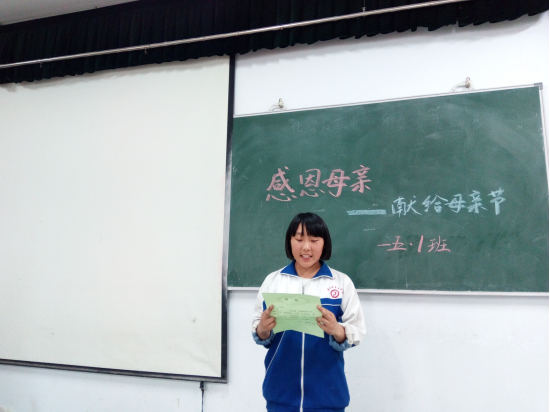 感恩母亲
——献给母亲节
一五·1班